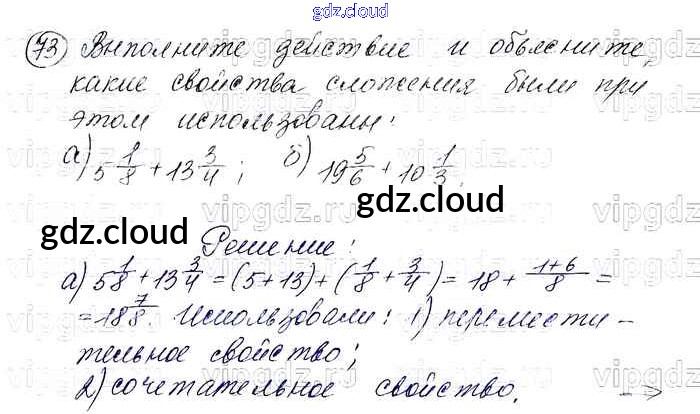 gdz.cloud
73 Выполните действие и объясните,
какие свойства сложения были при
этом использованы:
а) 5 1/8 + 13 3/4 ; б) 19 5/6 + 10 1/3.
gdz.cloud gdz.cloud
Решение:
а) 5 1/8 + 13 3/4 = (5+13) + (1/8 + 3/4) = 18 + (1+6)/8 =
= 18 7/8. Использовали: 1) перемести-
тельное свойство;
2) сочетательное свойство. →